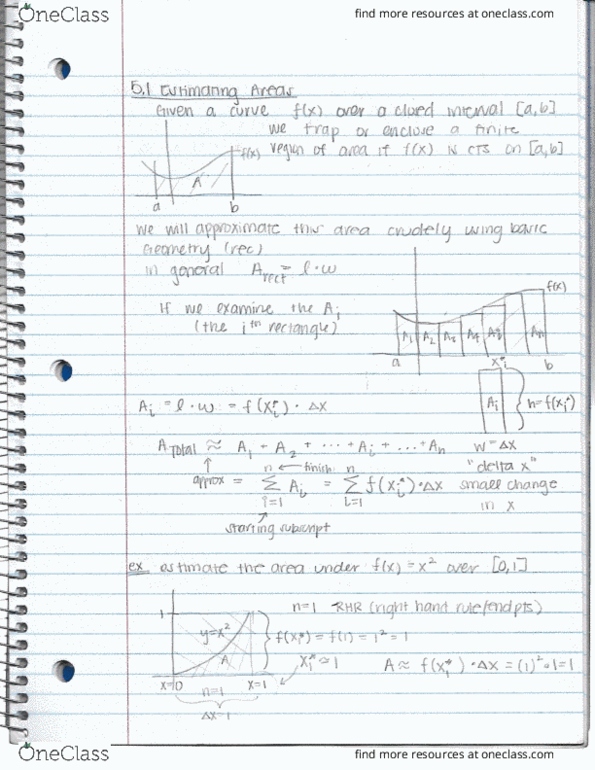 OneClass
find more resources at oneclass.com
5.1 Estimating Areas
Given a curve f(x) over a closed interval [a,b]
we trap or enclose a finite
region of area if f(x) is cts on [a,b]
f(x)
A
a b
we will approximate this area crudely using basic
Geometry (rec)
in general A_rect = l · w
If we examine the A_i
(the i^th rectangle)
f(x)
A_1 A_2 A_3 A_4 A_i A_n
a x_i^* b
A_i h = f(x_i^*)
A_i = l · w = f(x_i^*) · Δx
A_TOTAL ≈ A_1 + A_2 + ... + A_i + ... + A_n w = Δx
↑ n ← finish n "delta x"
approx = Σ A_i = Σ f(x_i^*) · Δx small change
i=1 i=1 in x
↑
starting subscript
ex estimate the area under f(x) = x² over [0,1]
n=1 RHR (right hand rule/endpts)
1
y=x²
f(x_1^*) = f(1) = 1² = 1
A
x_1^* = 1 A ≈ f(x_1^*) · Δx = (1)² · 1 = 1
x=0 n=1 x=1
Δx=1
OneClass
find more resources at oneclass.com